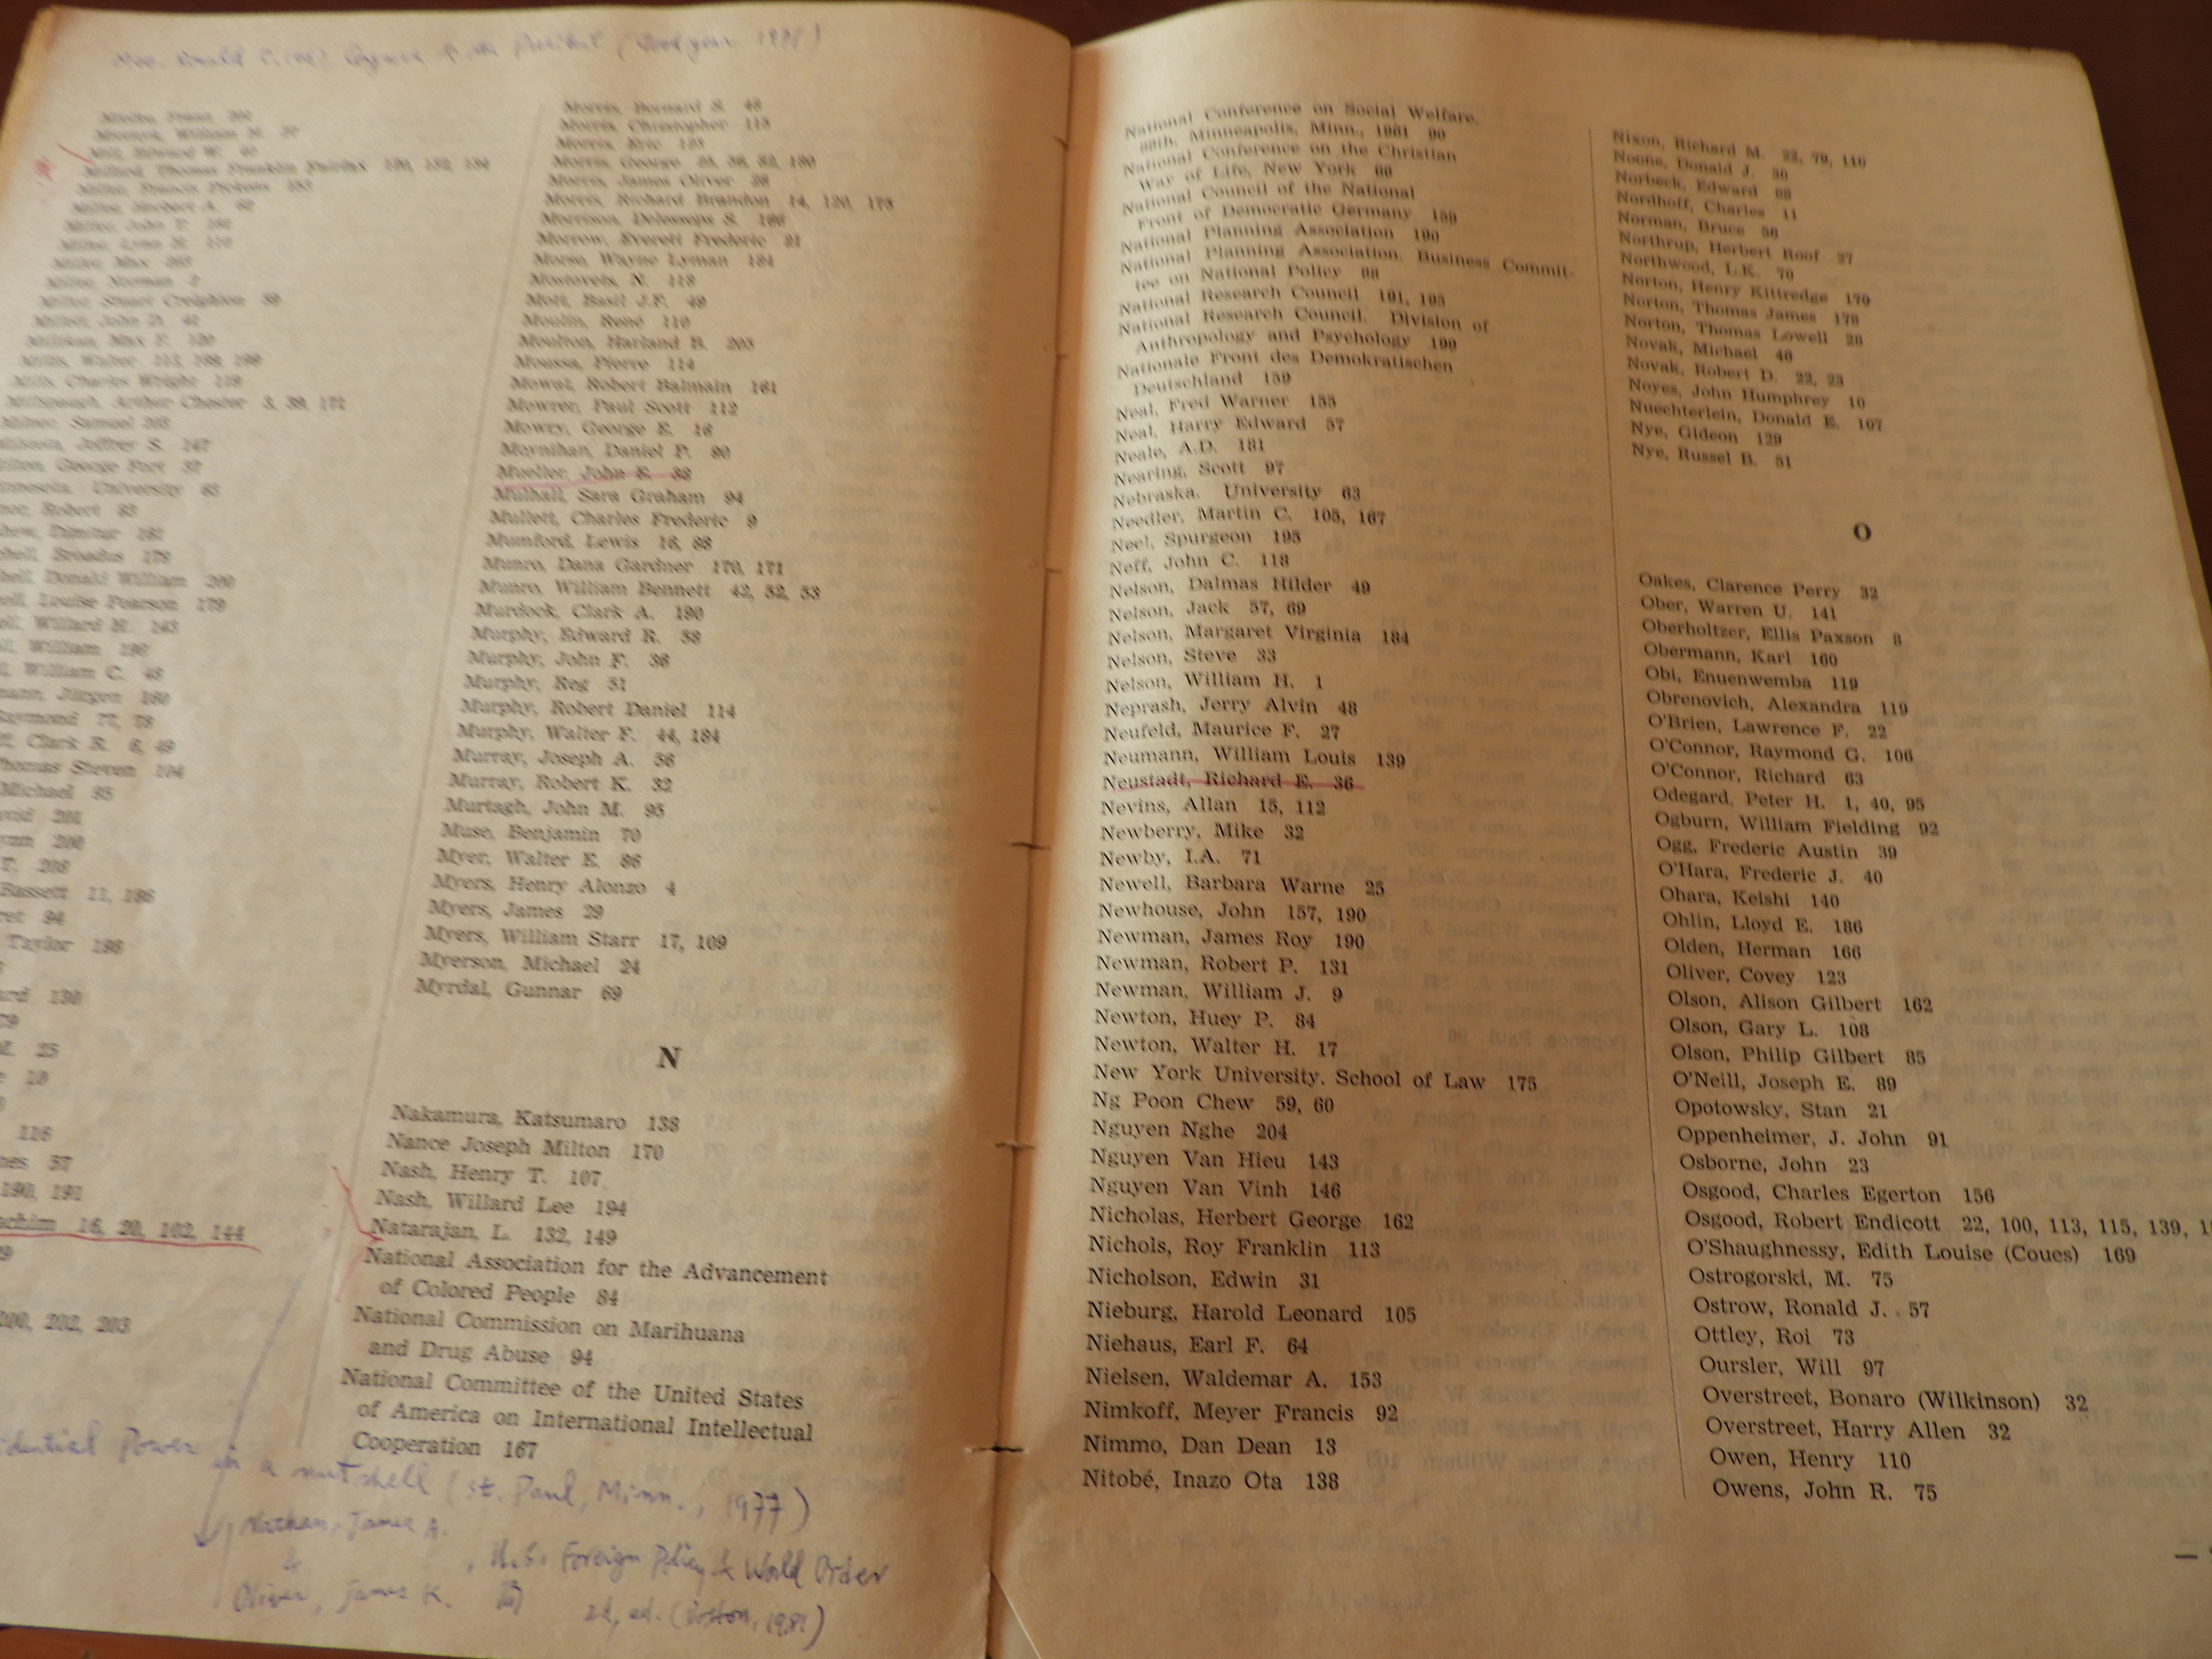 William H.
Mill, Edward W.
Millard, Thomas Franklin Fairfax
Miller, Francis Pickens
Miller, Herbert A.
Miller, John
Miller, Lynn H.
Miller, Max
Miller, Norman
Miller, Stuart Creighton
Millett, John D.
Millikan, Max F.
Millis, Walter
Mills, Charles Wright
Millspaugh, Arthur Chester
Milner, Samuel
Jeffrey S. 147
George Fort 37
University 63
Robert 83
Dimitar
Broadus 179
Donald William 200
Louise Pearson 179
Willard H. 143
William
William C. 48
Jürgen 160
Raymond 77, 78
Clark R. 6, 49
Thomas Steven 104
Michael 95
201
200
T. 208
Bassett 11, 186
94
Taylor 198
130
M. 25
10
116
57
190, 191
achim 16, 20, 102, 144
200, 202, 203
Morris, Bernard S. 48
Morris, Christopher 113
Morris, Eric 123
Morris, George
Morris, James Oliver 28
Morris, Richard Brandon 14, 120, 175
Morrison, Delesseps S. 166
Morrow, Everett Frederic 21
Morse, Wayne Lyman 184
Mostovets, N. 118
Mott, Basil J.F. 49
Moulin, René 110
Moulton, Harland B. 203
Moussa, Pierre 114
Mowat, Robert Balmain 161
Mowrer, Paul Scott 112
Mowry, George E. 16
Moynihan, Daniel P. 90
Mueller, John E. 38
Mulhall, Sara Graham 94
Mullett, Charles Frederic 9
Mumford, Lewis 16, 88
Munro, Dana Gardner 170, 171
Munro, William Bennett 42, 52, 53
Murdock, Clark A. 190
Murphy, Edward R. 58
Murphy, John F. 36
Murphy, Reg 51
Murphy, Robert Daniel 114
Murphy, Walter F. 44, 184
Murray, Joseph A. 56
Murray, Robert K. 32
Murtagh, John M. 95
Muse, Benjamin 70
Myer, Walter E. 86
Myers, Henry Alonzo 4
Myers, James 29
Myers, William Starr 17, 109
Myerson, Michael 24
Myrdal, Gunnar 69
N
Nakamura, Katsumaro 138
Nance Joseph Milton 170
Nash, Henry T. 107
Nash, Willard Lee 194
Natarajan, L. 132, 149
National Association for the Advancement
of Colored People 84
National Commission on Marihuana
and Drug Abuse 94
National Committee of the United States
of America on International Intellectual
Cooperation 167
idential Power in a nutshell (St. Paul, Minn., 1977)
Nathan, James A.
&
Oliver, James K. , U.S. Foreign Policy & World Order
2d, ed. (Boston, 1981)
National Conference on Social Welfare.
88th, Minneapolis, Minn., 1961 90
National Conference on the Christian
Way of Life, New York 60
National Council of the National
Front of Democratic Germany 159
National Planning Association 190
National Planning Association. Business Commit-
tee on National Policy 88
National Research Council 101, 195
National Research Council. Division of
Anthropology and Psychology 199
Nationale Front des Demokratischen
Deutschland 159
Neal, Fred Warner 155
Neal, Harry Edward 57
Neale, A.D. 181
Nearing, Scott 97
Nebraska. University 63
Needler, Martin C. 105, 167
Neel, Spurgeon 195
Neff, John C. 118
Nelson, Dalmas Hilder 49
Nelson, Jack 57, 69
Nelson, Margaret Virginia 184
Nelson, Steve 33
Nelson, William H. 1
Neprash, Jerry Alvin 48
Neufeld, Maurice F. 27
Neumann, William Louis 139
Neustadt, Richard E. 36
Nevins, Allan 15, 112
Newberry, Mike 32
Newby, I.A. 71
Newell, Barbara Warne 25
Newhouse, John 157, 190
Newman, James Roy 190
Newman, Robert P. 131
Newman, William J. 9
Newton, Huey P. 84
Newton, Walter H. 17
New York University. School of Law 175
Ng Poon Chew 59, 60
Nguyen Nghe 204
Nguyen Van Hieu 143
Nguyen Van Vinh 146
Nicholas, Herbert George 162
Nichols, Roy Franklin 113
Nicholson, Edwin 31
Nieburg, Harold Leonard 105
Niehaus, Earl F. 64
Nielsen, Waldemar A. 153
Nimkoff, Meyer Francis 92
Nimmo, Dan Dean 13
Nitobé, Inazo Ota 138
Nixon, Richard M. 22, 79, 110
Noone, Donald J. 30
Norbeck, Edward 98
Nordhoff, Charles 11
Norman, Bruce 56
Northrup, Herbert Roof 27
Northwood, L.K. 70
Norton, Henry Kittredge 170
Norton, Thomas James 178
Norton, Thomas Lowell 28
Novak, Michael 46
Novak, Robert D. 22, 23
Noyes, John Humphrey 10
Nuechterlein, Donald E. 107
Nye, Gideon 129
Nye, Russel B. 51
O
Oakes, Clarence Perry 32
Ober, Warren U. 141
Oberholtzer, Ellis Paxson 8
Obermann, Karl 160
Obi, Enuenwemba 119
Obrenovich, Alexandra 119
O'Brien, Lawrence F. 22
O'Connor, Raymond G. 106
O'Connor, Richard 63
Odegard, Peter H. 1, 40, 95
Ogburn, William Fielding 92
Ogg, Frederic Austin 39
O'Hara, Frederic J. 40
Ohara, Keishi 140
Ohlin, Lloyd E. 186
Olden, Herman 166
Oliver, Covey 123
Olson, Alison Gilbert 162
Olson, Gary L. 108
Olson, Philip Gilbert 85
O'Neill, Joseph E. 89
Opotowsky, Stan 21
Oppenheimer, J. John 91
Osborne, John 23
Osgood, Charles Egerton 156
Osgood, Robert Endicott 22, 100, 113, 115, 139,
O'Shaughnessy, Edith Louise (Coues) 169
Ostrogorski, M. 75
Ostrow, Ronald J. 57
Ottley, Roi 73
Oursler, Will 97
Overstreet, Bonaro (Wilkinson) 32
Overstreet, Harry Allen 32
Owen, Henry 110
Owens, John R. 75